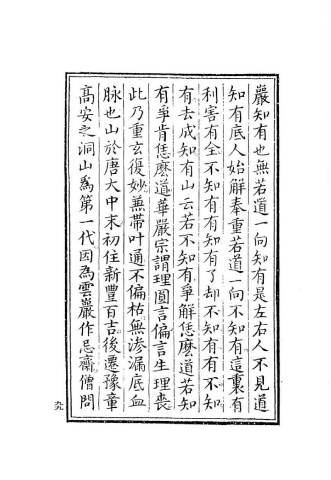 嚴知有也無若道一向知有是左右人不見道
知有底人始解奉重若道一向不知有這裏有
利害有全不知有有知有了却不知有有不知
有去成知有山云若不知有爭解恁麽道若知
有爭肯恁麽道華嚴宗謂理圓言偏言生理喪
此乃重玄復妙兼帶叶通不偏枯無滲漏底血
脉也山於唐大中末初住新豐百吉後遷豫章
高安之洞山爲第一代因爲雲巖作忌齋僧問